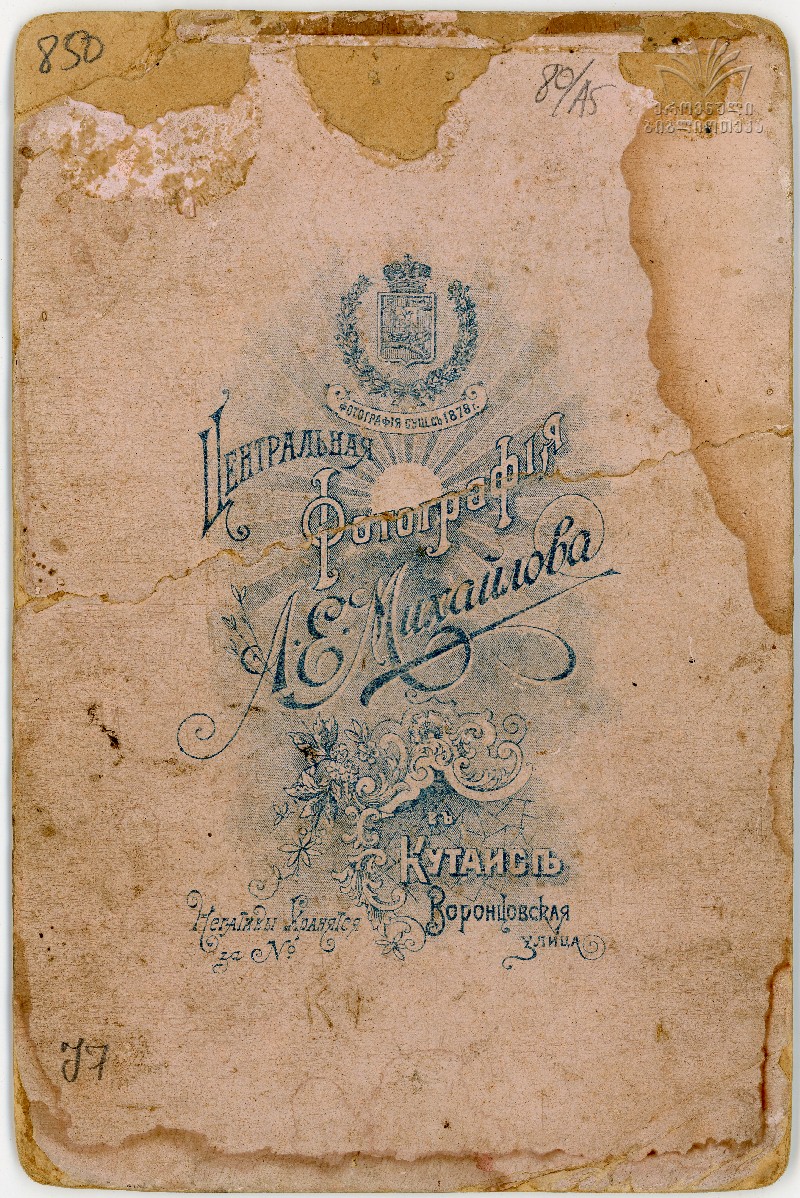 850
80/А5
ეროვნული
ბიბლიოთეკა
ФОТОГРАФІЯ СУЩ. СЪ 1878 г.
ЦЕНТРАЛЬНАЯ
Фотографія
А. Е. Михайлова
въ
КУТАИСѢ
Негативы Хранятся
за №
Воронцовская
улица
J7